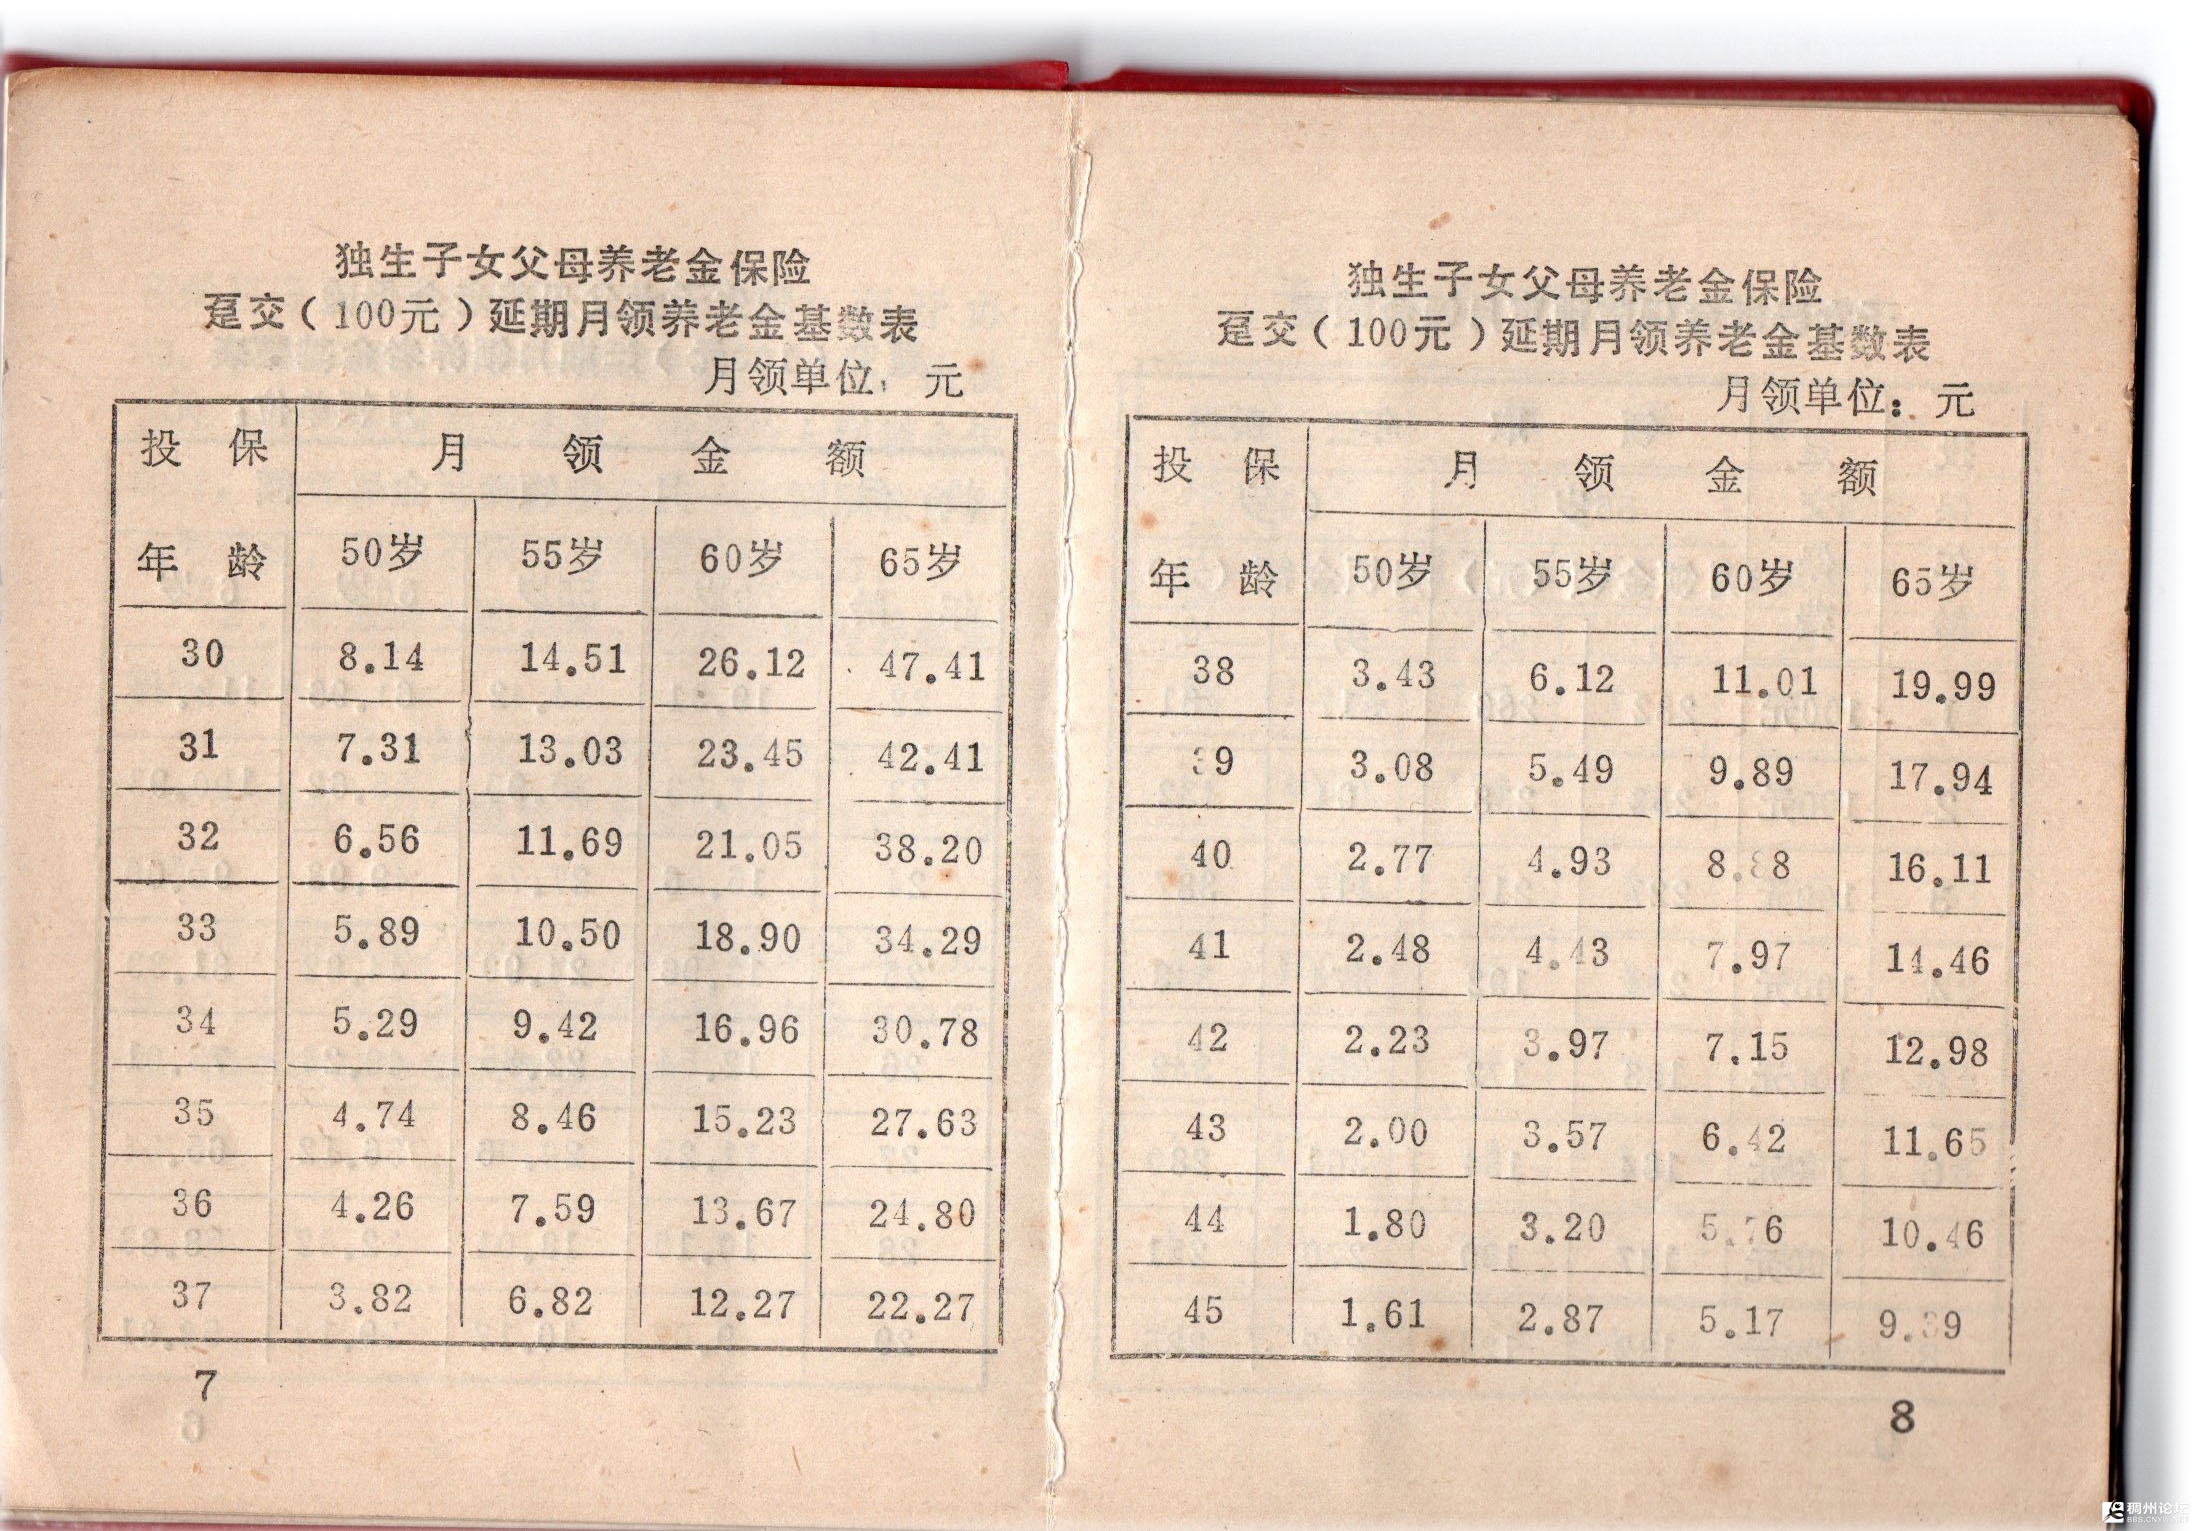 独生子女父母养老金保险
趸交（100元）延期月领养老金基数表
月领单位：元
投保年龄 月领金额
50岁 55岁 60岁 65岁
30 8.14 14.51 26.12 47.41
31 7.31 13.03 23.45 42.41
32 6.56 11.69 21.05 38.20
33 5.89 10.50 18.90 34.29
34 5.29 9.42 16.96 30.78
35 4.74 8.46 15.23 27.63
36 4.26 7.59 13.67 24.80
37 3.82 6.82 12.27 22.27
7
独生子女父母养老金保险
趸交（100元）延期月领养老金基数表
月领单位：元
投保年龄 月领金额
50岁 55岁 60岁 65岁
38 3.43 6.12 11.01 19.99
39 3.08 5.49 9.89 17.94
40 2.77 4.93 8.88 16.11
41 2.48 4.43 7.97 14.46
42 2.23 3.97 7.15 12.98
43 2.00 3.57 6.42 11.65
44 1.80 3.20 5.76 10.46
45 1.61 2.87 5.17 9.39
8
稠州论坛